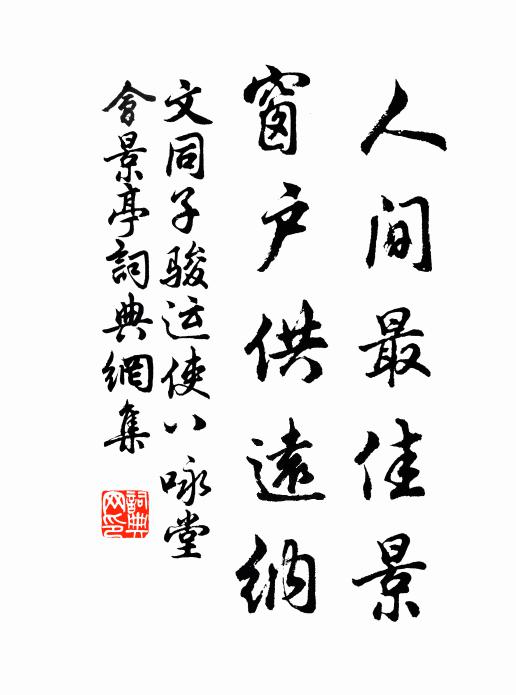 人间最佳景
窗户供遠纳
文同子骏运使八咏堂
會景亭詞典網集
詞典网印